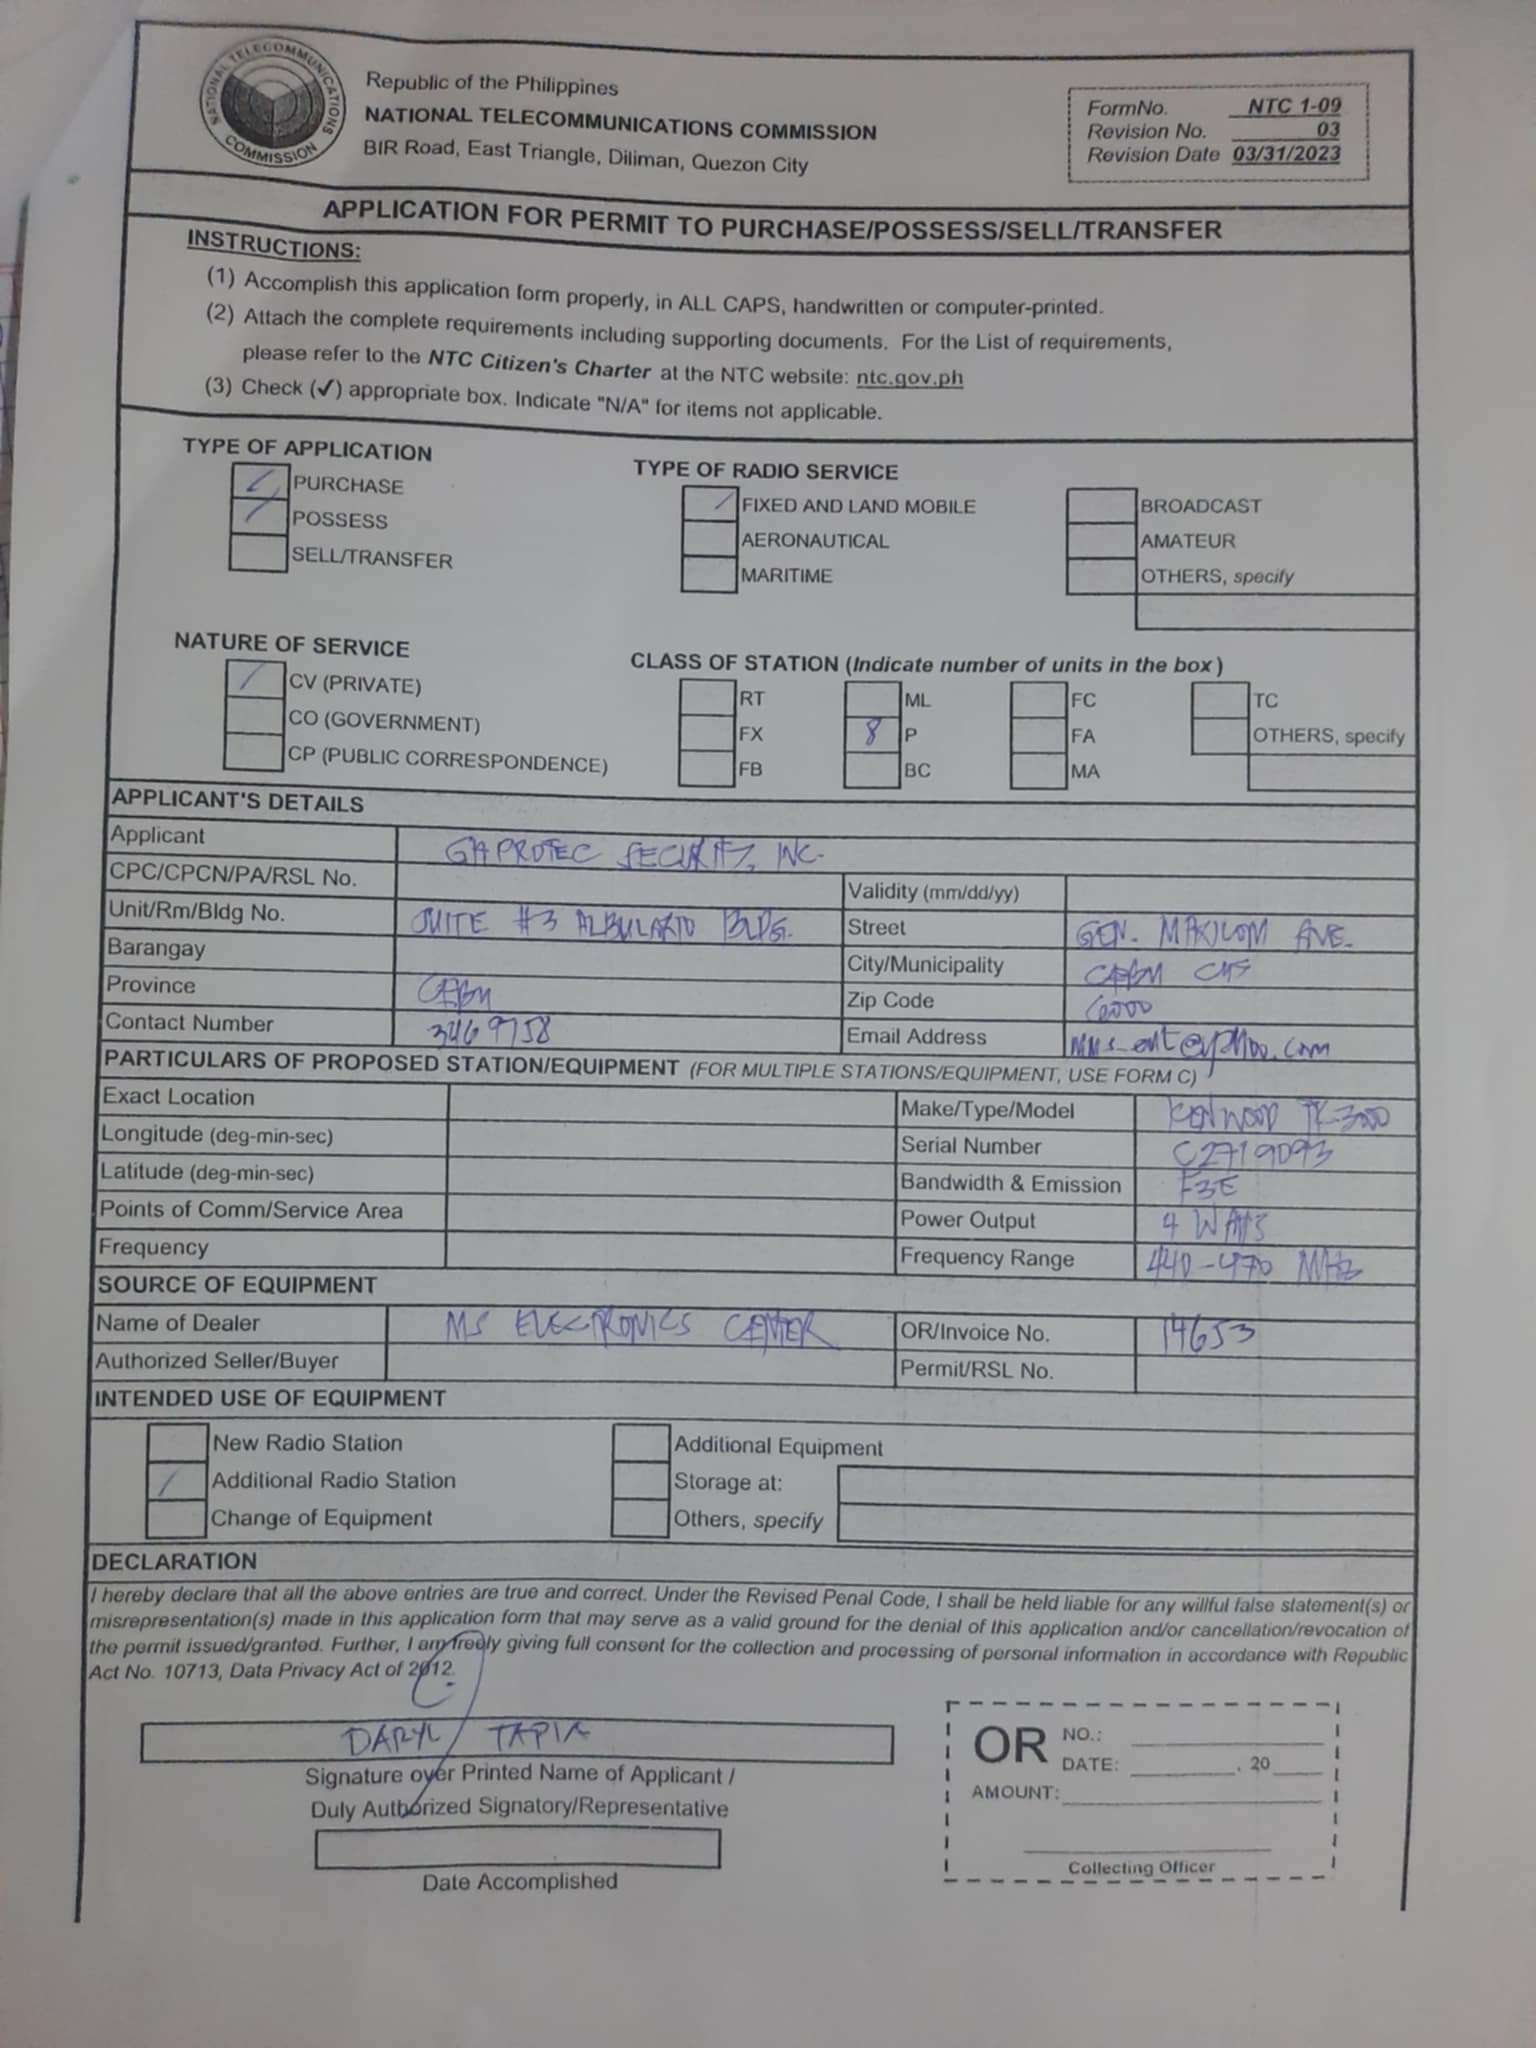 NATIONAL TELECOMMUNICATIONS COMMISSION
Republic of the Philippines
NATIONAL TELECOMMUNICATIONS COMMISSION
BIR Road, East Triangle, Diliman, Quezon City
FormNo. NTC 1-09
Revision No. 03
Revision Date 03/31/2023
APPLICATION FOR PERMIT TO PURCHASE/POSSESS/SELL/TRANSFER
INSTRUCTIONS:
(1) Accomplish this application form properly, in ALL CAPS, handwritten or computer-printed.
(2) Attach the complete requirements including supporting documents. For the List of requirements,
please refer to the NTC Citizen's Charter at the NTC website: ntc.gov.ph
(3) Check (✓) appropriate box. Indicate "N/A" for items not applicable.
TYPE OF APPLICATION
/ PURCHASE
/ POSSESS
SELL/TRANSFER
TYPE OF RADIO SERVICE
/ FIXED AND LAND MOBILE
AERONAUTICAL
MARITIME
BROADCAST
AMATEUR
OTHERS, specify
NATURE OF SERVICE
/ CV (PRIVATE)
CO (GOVERNMENT)
CP (PUBLIC CORRESPONDENCE)
CLASS OF STATION (Indicate number of units in the box)
RT ML FC TC
FX 8 P FA OTHERS, specify
FB BC MA
APPLICANT'S DETAILS
Applicant SECURITY, INC.
CPC/CPCN/PA/RSL No. Validity (mm/dd/yy)
Unit/Rm/Bldg No. SUITE #3 ALBULARIO BLDG. Street GEN. MAXILOM AVE.
Barangay City/Municipality CEBU CITY
Province CEBU Zip Code 6000
Contact Number 3469758 Email Address mms_ent@yahoo.com
PARTICULARS OF PROPOSED STATION/EQUIPMENT (FOR MULTIPLE STATIONS/EQUIPMENT, USE FORM C)
Exact Location Make/Type/Model KENWOOD TK-3000
Longitude (deg-min-sec) Serial Number C2719093
Latitude (deg-min-sec) Bandwidth & Emission F3E
Points of Comm/Service Area Power Output 4 WATTS
Frequency Frequency Range 440-470 MHz
SOURCE OF EQUIPMENT
Name of Dealer MS ELECTRONICS CENTER OR/Invoice No. 14653
Authorized Seller/Buyer Permit/RSL No.
INTENDED USE OF EQUIPMENT
New Radio Station Additional Equipment
/ Additional Radio Station Storage at:
Change of Equipment Others, specify
DECLARATION
I hereby declare that all the above entries are true and correct. Under the Revised Penal Code, I shall be held liable for any willful false statement(s) or
misrepresentation(s) made in this application form that may serve as a valid ground for the denial of this application and/or cancellation/revocation of
the permit issued/granted. Further, I am freely giving full consent for the collection and processing of personal information in accordance with Republic
Act No. 10713, Data Privacy Act of 2012.
DARYL TAPIA
Signature over Printed Name of Applicant /
Duly Authorized Signatory/Representative
Date Accomplished
OR NO.:
DATE: , 20
AMOUNT:
Collecting Officer